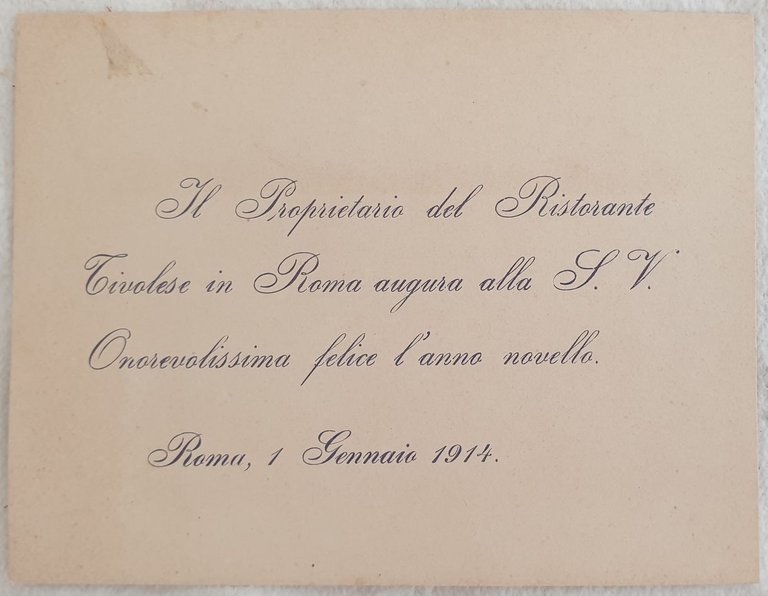 Il Proprietario del Ristorante
Tivolese in Roma augura alla S. V.
Onorevolissima felice l'anno novello.
Roma, 1 Gennaio 1914.